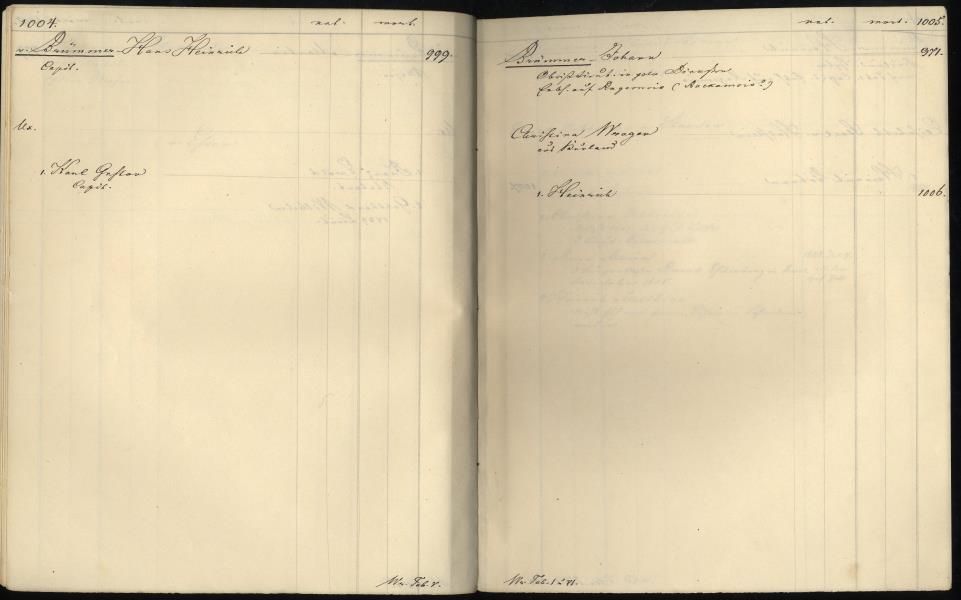 1004.
nat.
mort.
v. Brümmer Hans Heinrich
999.
Capit.
Ux.
1. Karl Gustav
Capit.
Wr. Tab. V.
nat.
mort.
1005.
Brümmer Johann
971.
Obristlieut. in poln. Diensten
Erbh. auf (Rockamois?)
Christina
aus Kurland
1. Heinrich
1006.
Wr. Tab.